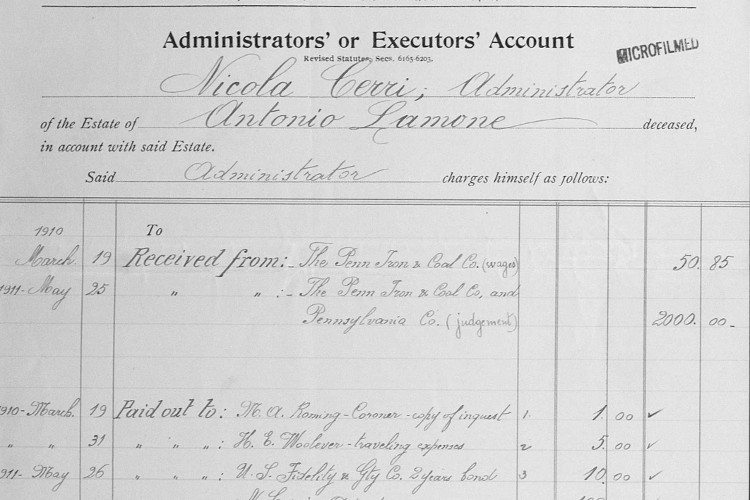 Administrators' or Executors' Account
MICROFILMED
Revised Statutes, Secs. 6165-6203.
Nicola Cerri, Administrator
of the Estate of Antonio Lamone deceased,
in account with said Estate.
Said Administrator charges himself as follows:
1910 To
March 19 Received from:- The Penn Iron & Coal Co. (wages) 50. 85
1911- May 25 " " :- The Penn Iron & Coal Co, and
Pennsylvania Co. (judgement) 2000. 00-
1910- March. 19 Paid out to: M. A. Roming - Coroner - copy of inquest 1. 1. 00 ✓
" " 31 " " " : H. E. Woolever - traveling expenses 2 5. 00 ✓
1911- May 26 " " " : U. S. Fidelity & Gty Co. 2 years bond 3 10. 00 ✓